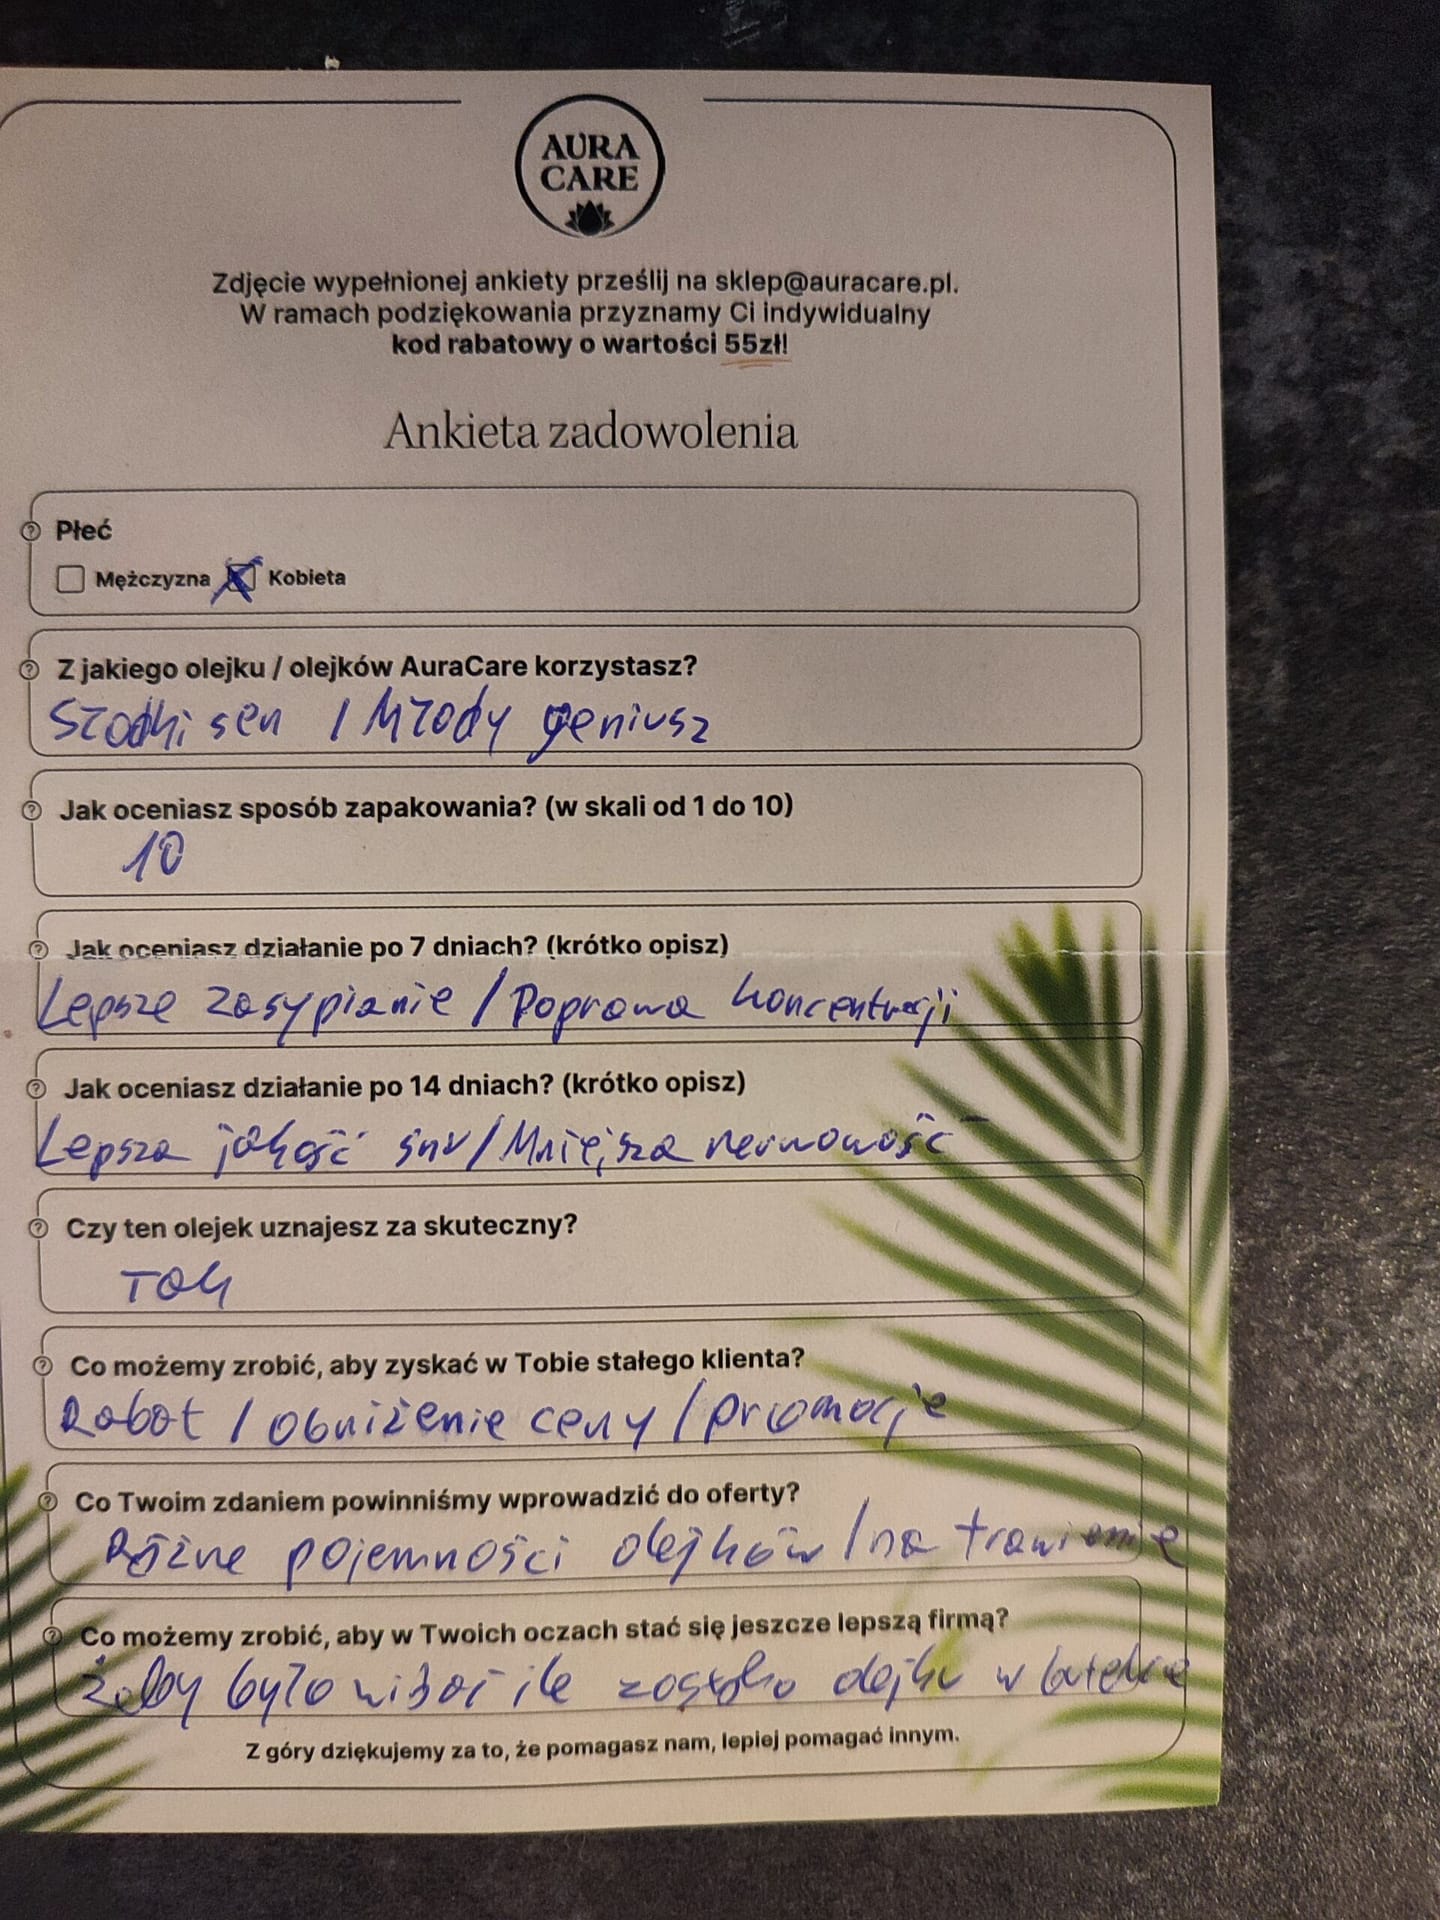 AURA
CARE
Zdjęcie wypełnionej ankiety prześlij na sklep@auracare.pl.
W ramach podziękowania przyznamy Ci indywidualny
kod rabatowy o wartości 55zł!
Ankieta zadowolenia
Płeć
Mężczyzna Kobieta
Z jakiego olejku / olejków AuraCare korzystasz?
Słodki sen / Młody geniusz
Jak oceniasz sposób zapakowania? (w skali od 1 do 10)
10
Jak oceniasz działanie po 7 dniach? (krótko opisz)
Lepsze zasypianie / Poprawa koncentracji
Jak oceniasz działanie po 14 dniach? (krótko opisz)
Lepsza jakość snu / Mniejsza nerwowość
Czy ten olejek uznajesz za skuteczny?
Tak
Co możemy zrobić, aby zyskać w Tobie stałego klienta?
Rabat / obniżenie ceny / promocje
Co Twoim zdaniem powinniśmy wprowadzić do oferty?
Różne pojemności olejków / na trawienie
Co możemy zrobić, aby w Twoich oczach stać się jeszcze lepszą firmą?
Żeby było widać ile zostało olejku w butelce
Z góry dziękujemy za to, że pomagasz nam, lepiej pomagać innym.